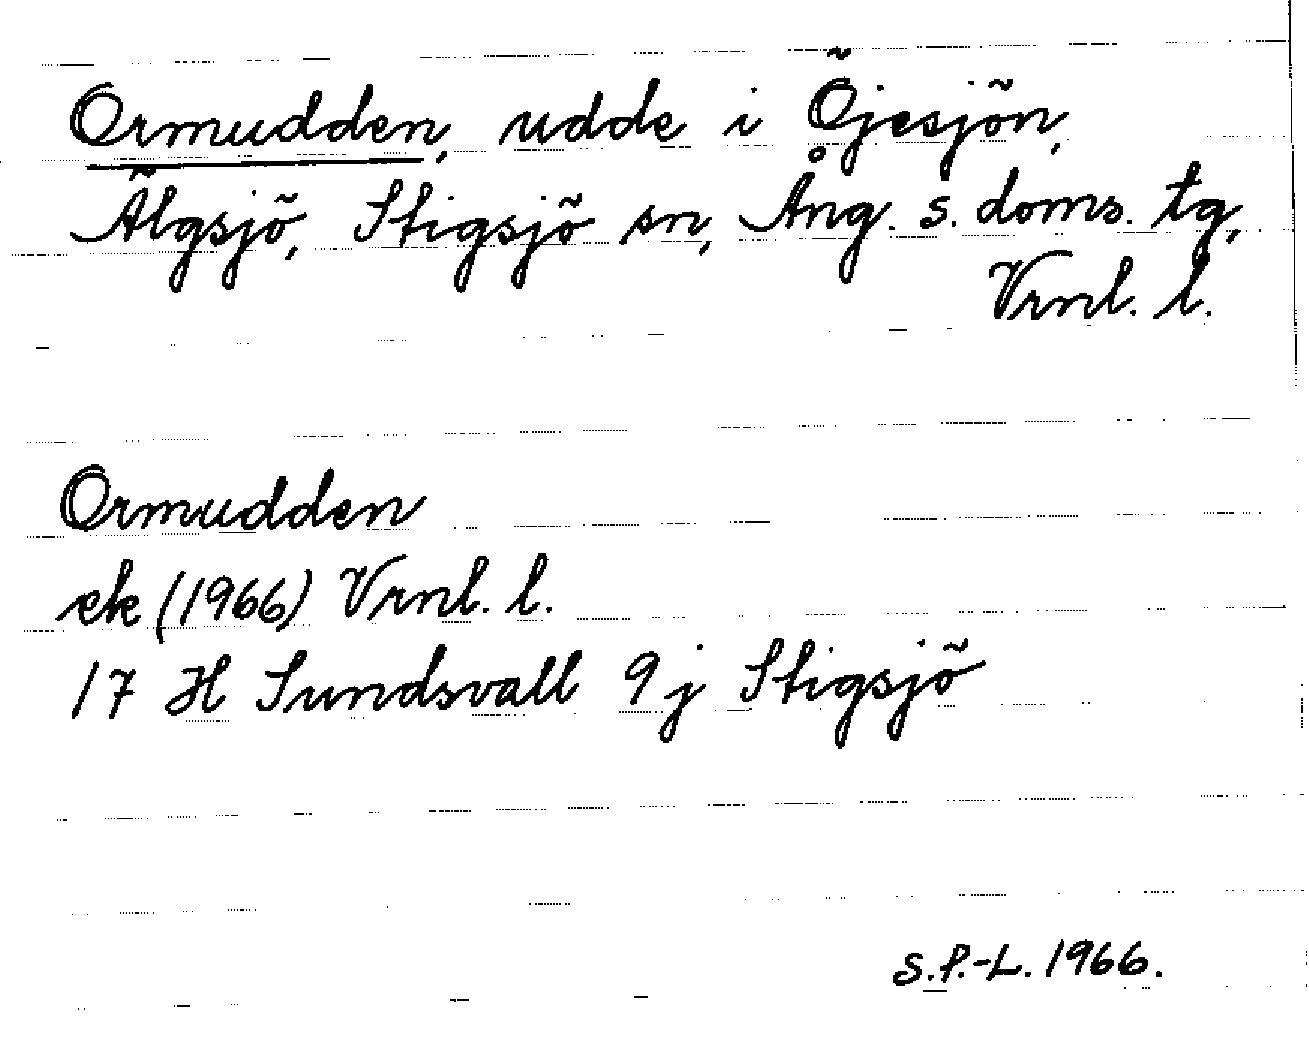 Ormudden, udde i Öjesjön,
Älgsjö, Stigsjö sn, Ång. s. doms. tg,
Vrnl. l.
Ormudden
ek (1966) Vrnl. l.
17 H Sundsvall 9j Stigsjö
S.P.-L. 1966.